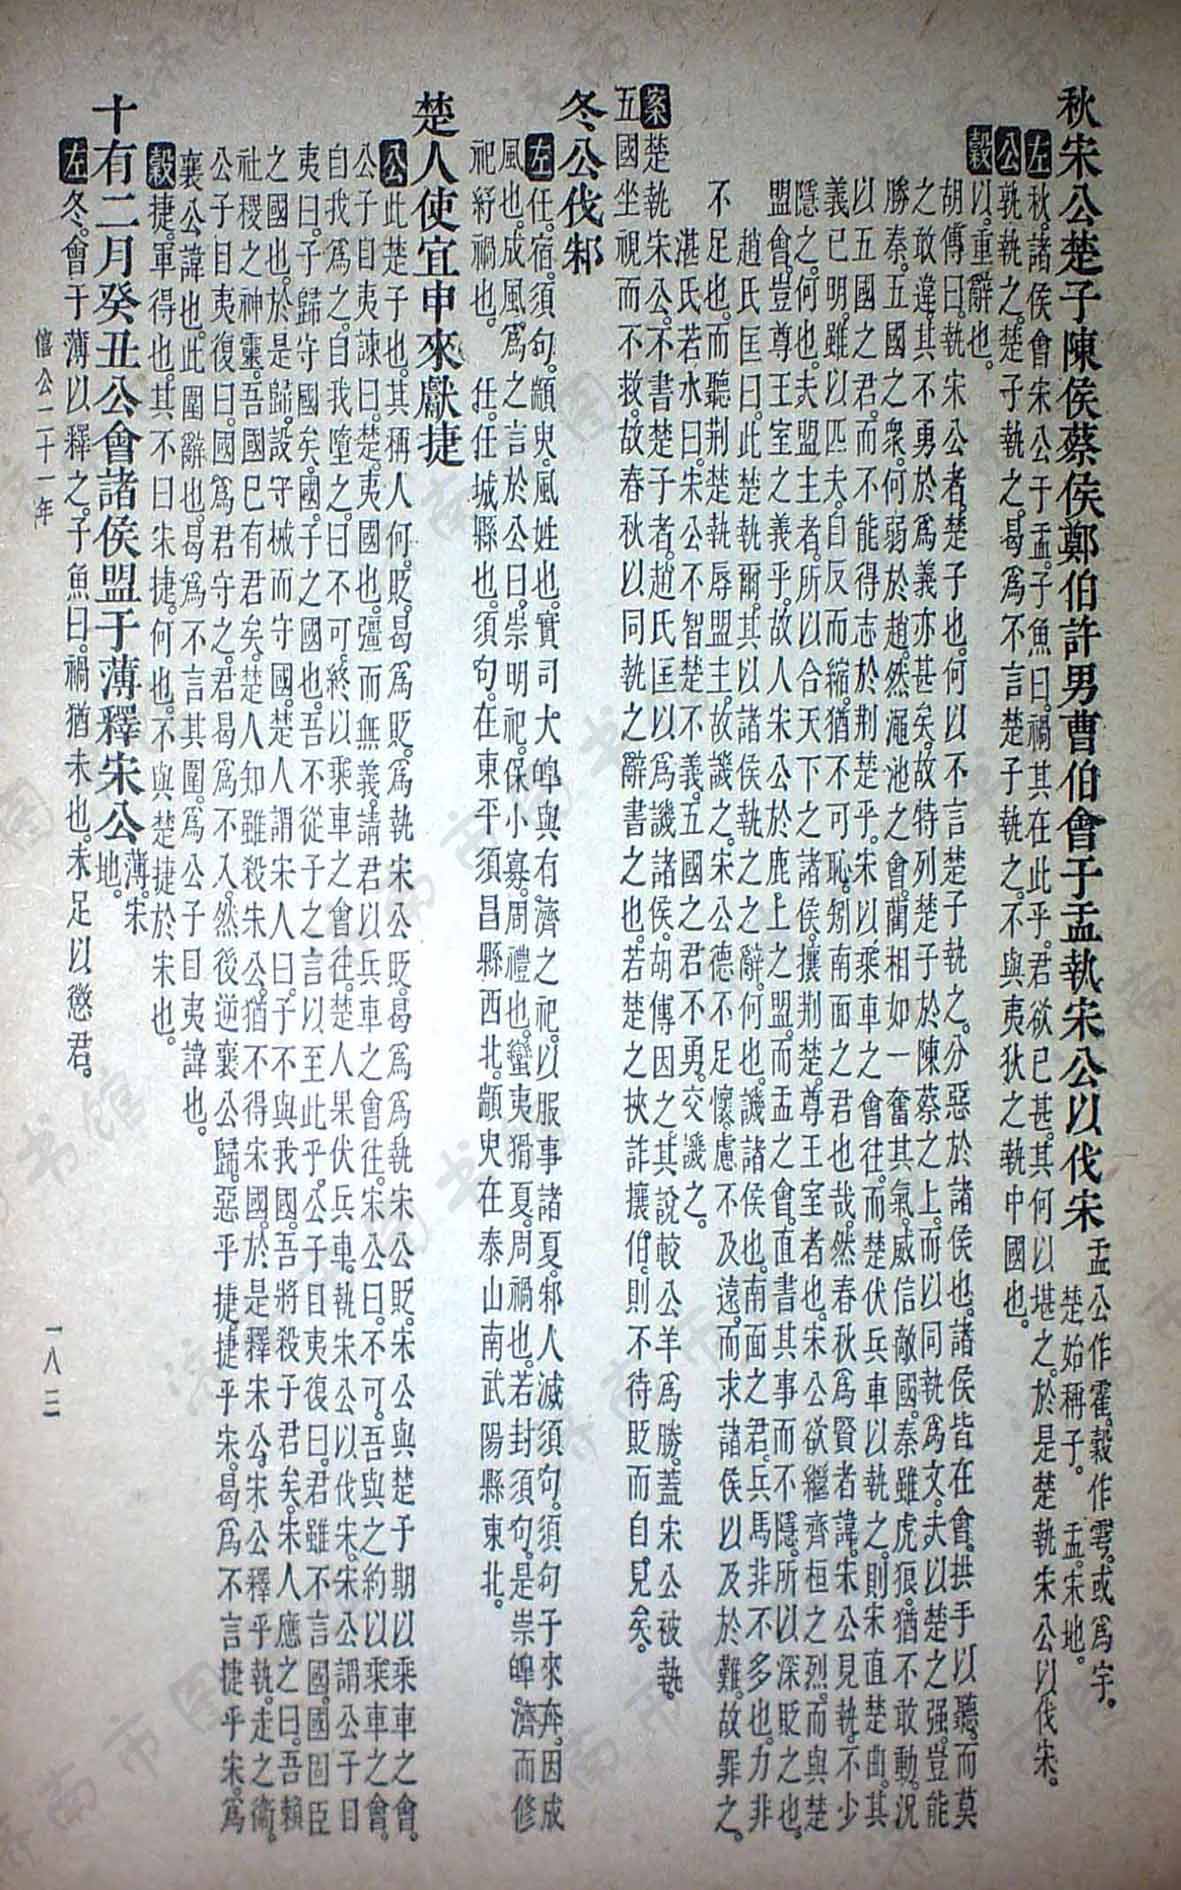 秋宋公楚子陳侯蔡侯鄭伯許男曹伯會于盂執宋公以伐宋盂公作霍。穀作雩。或爲宇。
楚始稱子。 盂。宋地。
左秋。諸侯會宋公于盂。子魚曰。禍其在此乎。君欲已甚。其何以堪之。於是楚執宋公以伐宋。
公孰執之。楚子執之。曷爲不言楚子執之。不與夷狄之執中國也。
穀以。重辭也。
胡傳曰。執宋公者。楚子也。何以不言楚子執之。分惡於諸侯也。諸侯皆在會。拱手以聽。而莫
之敢違。其不勇於爲義亦甚矣。故特列楚子於陳蔡之上。而以同執爲文。夫以楚之强。豈能
勝秦。五國之衆。何弱於趙。然澠池之會。藺相如一奮其氣。威信敵國。秦雖虎狼。猶不敢動。況
以五國之君。而不能得志於荆楚乎。宋以乘車之會往。而楚伏兵車以執之。則宋直楚曲。其
義已明。雖以匹夫。自反而縮。猶不可恥。矧南面之君也哉。然春秋爲賢者諱。宋公見執。不少
隱之。何也。夫盟主者。所以合天下之諸侯。攘荆楚。尊王室者也。宋公欲繼齊桓之烈。而與楚
盟會。豈尊王室之義乎。故人宋公於鹿上之盟。而盂之會。直書其事而不隱。所以深貶之也。
趙氏匡曰。此楚執爾。其以諸侯執之之辭。何也。譏諸侯也。南面之君。兵馬非不多也。力非
不足也。而聽荆楚執辱盟主。故譏之。宋公德不足懷。慮不及遠。而求諸侯以及於難。故罪之。
湛氏若水曰。宋公不智。楚不義。五國之君不勇。交譏之。
案楚執宋公。不書楚子者。趙氏匡以爲譏諸侯。胡傳因之。其說較公羊爲勝。蓋宋公被執。
五國坐視而不救。故春秋以同執之辭書之也。若楚之挾詐攘伯。則不待貶而自見矣。
冬公伐邾
左任。宿。須句。顓臾。風姓也。實司大皥與有濟之祀。以服事諸夏。邾人滅須句。須句子來奔。因成
風也。成風爲之言於公曰。崇明祀。保小寡。周禮也。蠻夷猾夏。周禍也。若封須句。是崇皥。濟而修
祀紓禍也。 任。任城縣也。須句。在東平須昌縣西北。顓臾在泰山南武陽縣東北。
楚人使宜申來獻捷
公此楚子也。其稱人何。貶。曷爲貶。爲執宋公貶。曷爲爲執宋公貶。宋公與楚子期以乘車之會。
公子目夷諫曰。楚夷國也。彊而無義。請君以兵車之會往。宋公曰。不可。吾與之約以乘車之會。
自我爲之。自我墮之。曰不可。終以乘車之會往。楚人果伏兵車。執宋公以伐宋。宋公謂公子目
夷曰。子歸守國矣。國。子之國也。吾不從子之言以至此乎。公子目夷復曰。君雖不言國。國固臣
之國也。於是歸。設守械而守國。楚人謂宋人曰。子不與我國。吾將殺子君矣。宋人應之曰。吾賴
社稷之神靈。吾國已有君矣。楚人知雖殺宋公。猶不得宋國。於是釋宋公。宋公釋乎執。走之衛。
公子目夷復曰。國爲君守之。君曷爲不入。然後逆襄公歸。惡乎捷。捷乎宋。曷爲不言捷乎宋。爲
襄公諱也。此圍辭也。曷爲不言其圍。爲公子目夷諱也。
穀捷。軍得也。其不曰宋捷。何也。不與楚捷於宋也。
十有二月癸丑公會諸侯盟于薄釋宋公薄。宋
地。
左冬。會于薄以釋之。子魚曰。禍猶未也。未足以懲君。
僖公二十一年
一八三